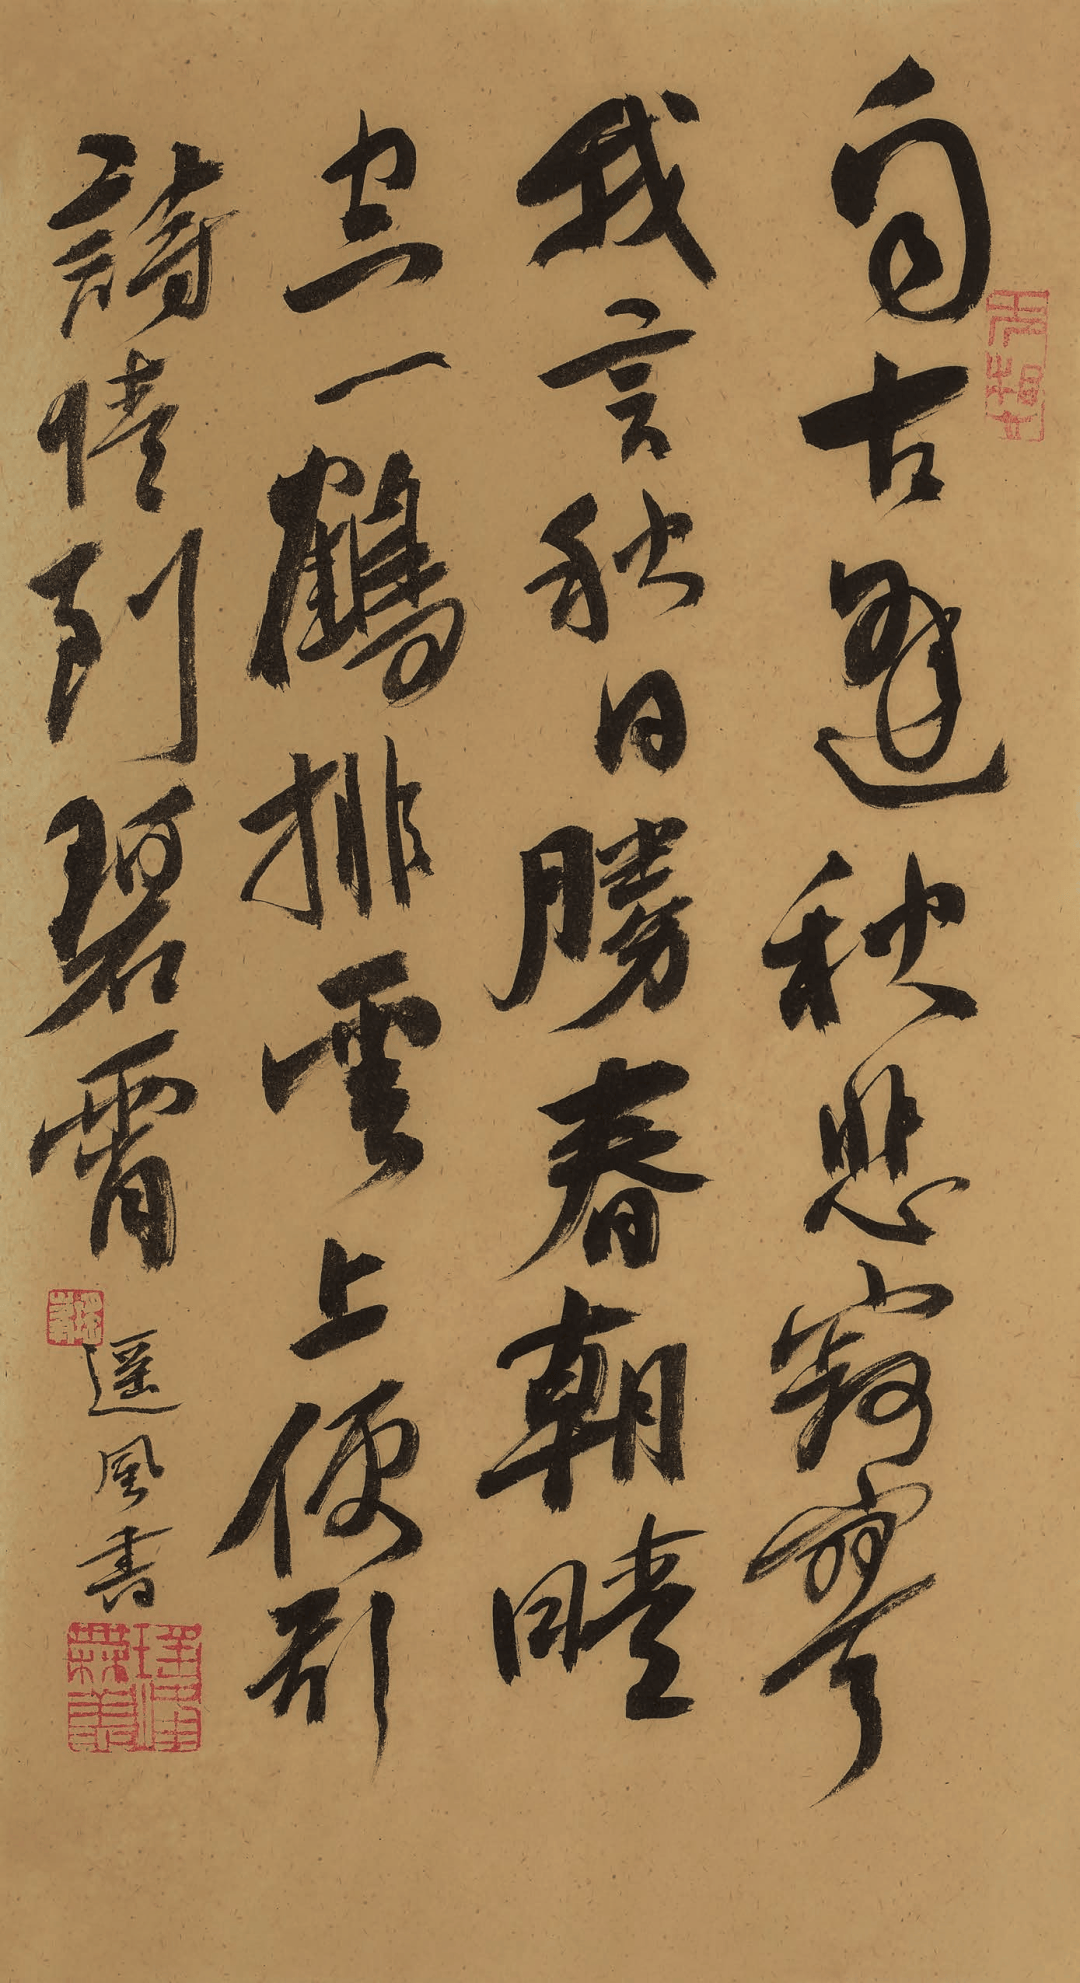 自古逢秋悲寂寥
我言秋日勝春朝晴
空一鶴排雲上便引
詩情到碧霄
遥風書